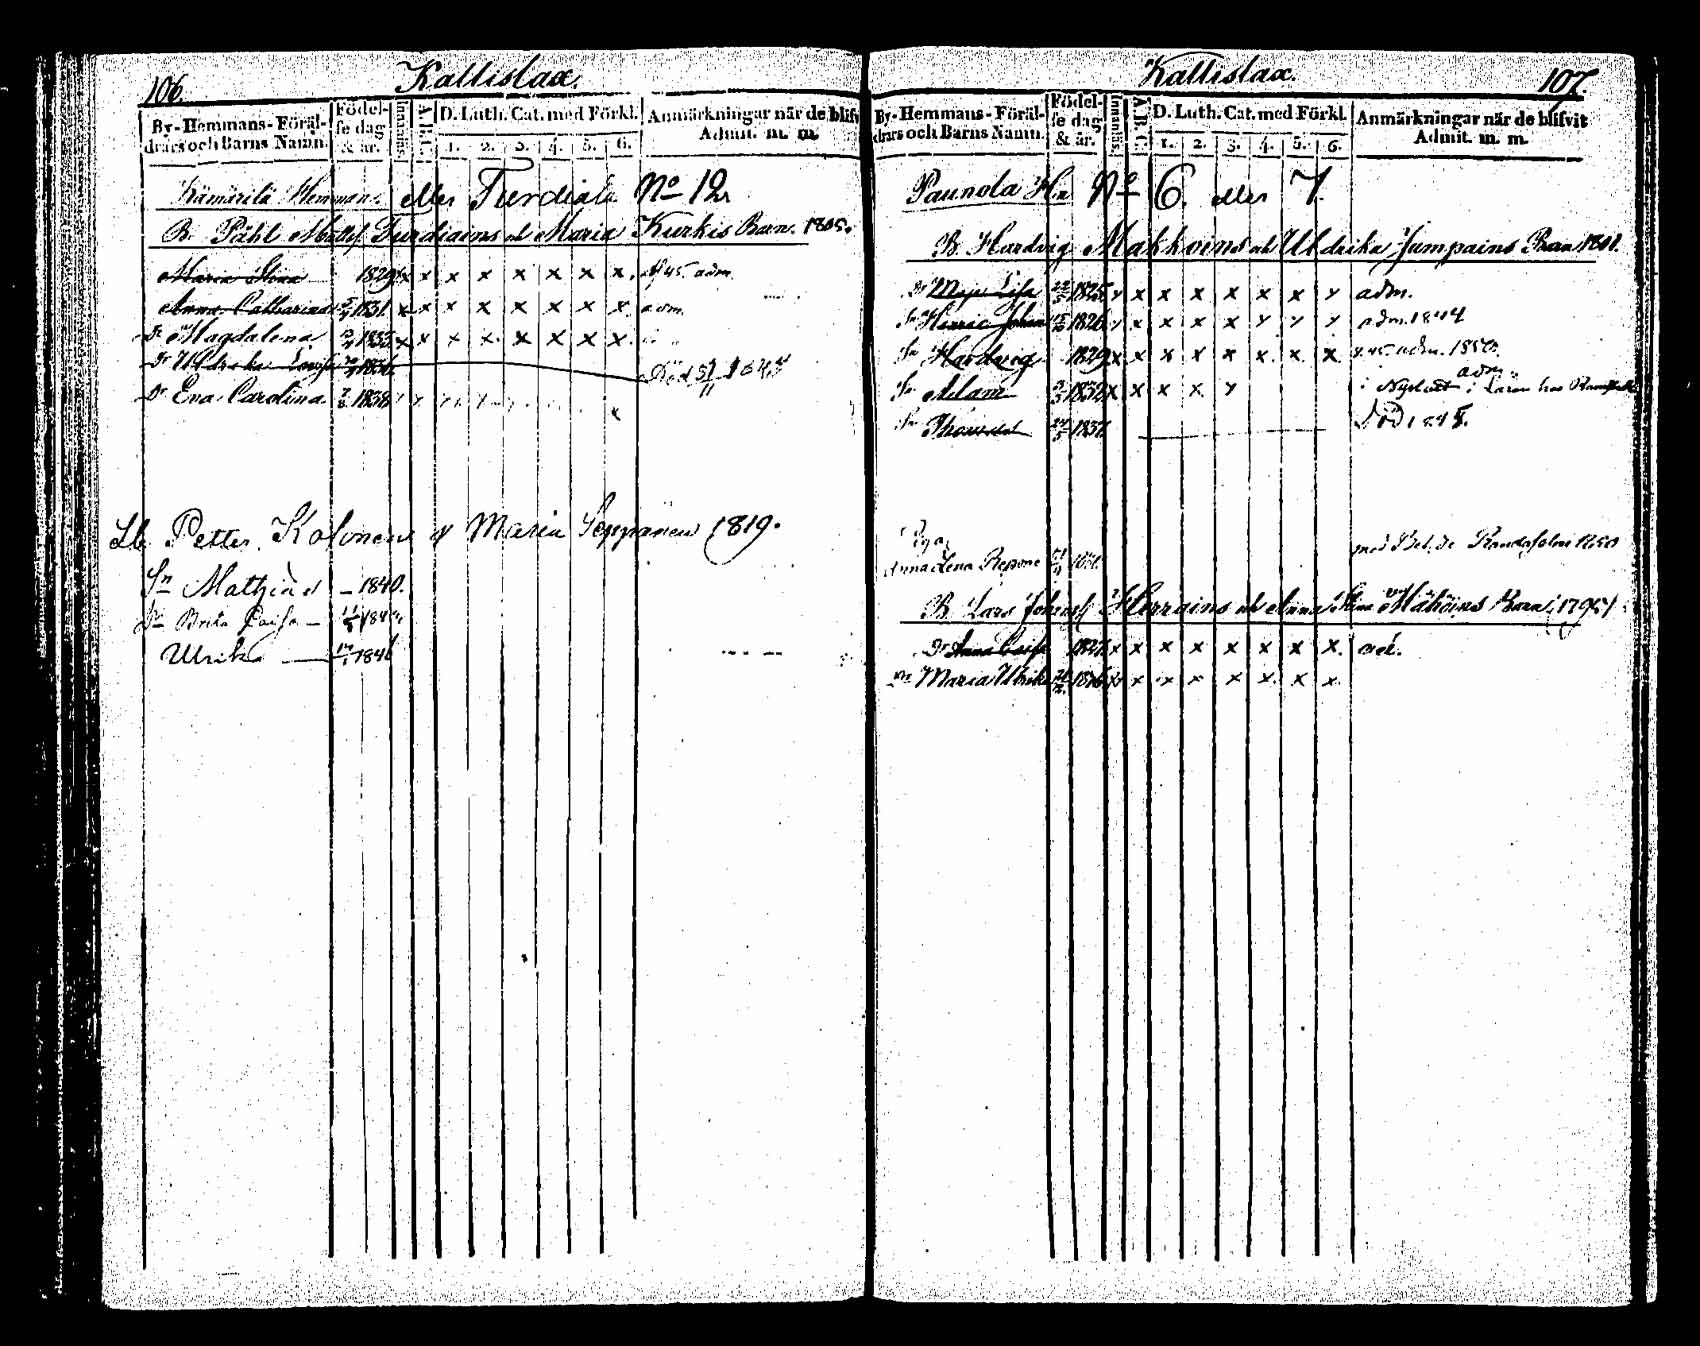 106.
Kallislax.
By-Hemmans-Föräl-
drars och Barns Namn.
Födel-
se dag
& år.
Innanläs.
A.B.C.
D. Luth. Cat. med Förkl.
1. 2. 3. 4. 5. 6.
Anmärkningar när de blifv
Admit. m. m.
Kämärilä Hemman. eller Turdiala No 12
B. Påhl Turdiains och Maria Kurkis Barn. 1805.
Maria Stina 1829 x x x x x x x x 45 adm.
Anna Catharina 1831. x x x x x x x x adm.
Dr Magdalena 1833 x x x x x x x x
Dr 1836 Död 1845
Dr Eva Carolina 1838
Petter Kolonen & Maria Seppänen 1819.
Sn Mathias – 1840.
Brita Caisa –
Ulrika — 1846
Kallislax.
107.
By-Hemmans-Föräl-
drars och Barns Namn.
Födel-
se dag
& år.
Innanläs.
A.B.C.
D. Luth. Cat. med Förkl.
1. 2. 3. 4. 5. 6.
Anmärkningar när de blifvit
Admit. m. m.
Paunola Hn No 6. eller 7.
B. Hardvig Makkoins och Uldrika Jumpains Barn 1801.
Dr Maja Lisa 1825 x x x x x x x x adm.
Sn Henric Johan 1826 x x x x x x x x adm. 1844
Sn Hardvig 1829 x x x x x x x x 45 adm. 1850.
adm.
Sn Adam 1832 x x x x x i Nyslott i Lära hos
Sn Thomas 1837. Död 1845.
Piga
Anna Lena Repone med Bet. de Randasalmi 1850
B. Lars Herrains och Anna Stina Barn 1795
Dr Anna Caisa 1827 x x x x x x x x ad.
Dr Maria Ulrika x x x x x x x x